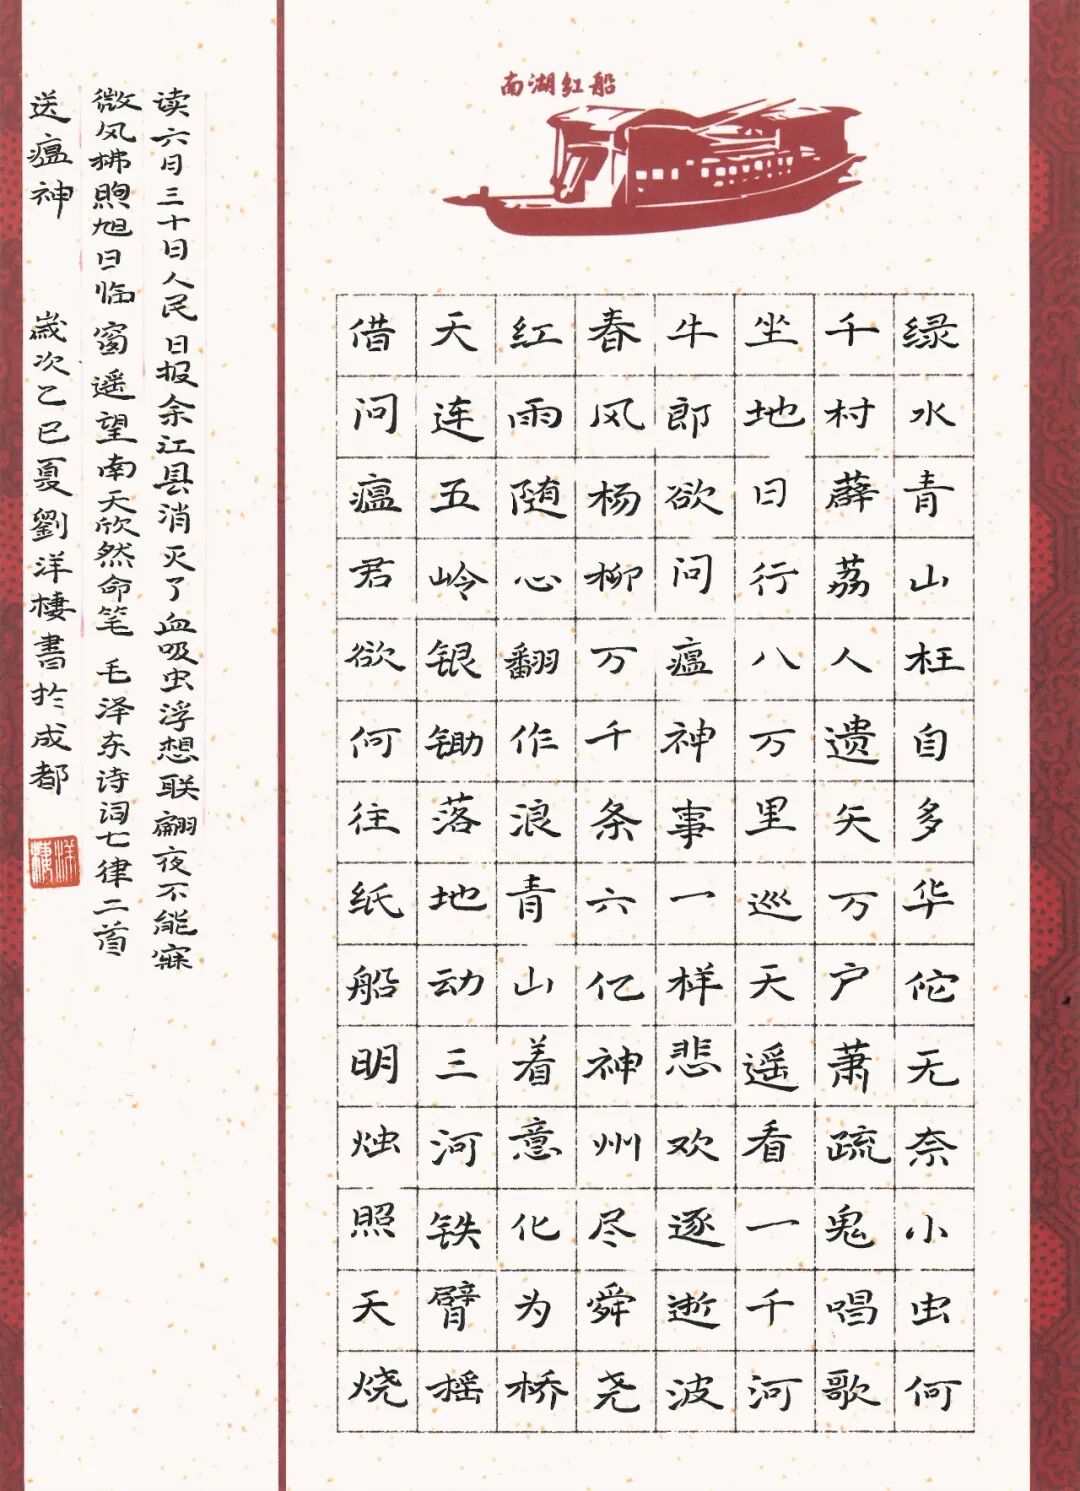 南湖红船
绿水青山枉自多华佗无奈小虫何
千村薜荔人遗矢万户萧疏鬼唱歌
坐地日行八万里巡天遥看一千河
牛郎欲问瘟神事一样悲欢逐逝波
春风杨柳万千条六亿神州尽舜尧
红雨随心翻作浪青山着意化为桥
天连五岭银锄落地动三河铁臂摇
借问瘟君欲何往纸船明烛照天烧
读六月三十日人民日报余江县消灭了血吸虫浮想联翩夜不能寐
微风拂煦旭日临窗遥望南天欣然命笔 毛泽东诗词七律二首
送瘟神 歲次乙巳夏劉洋棲書於成都
洋棲